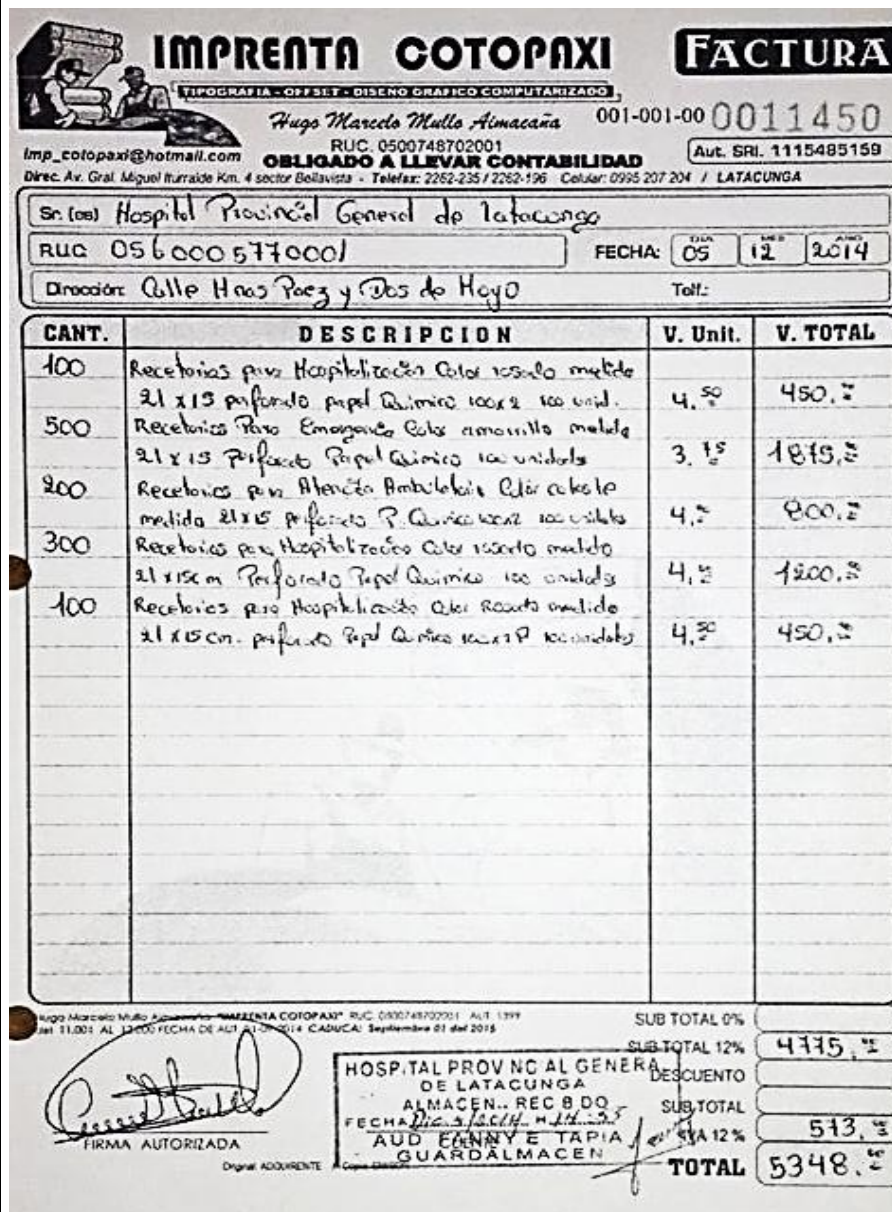 IMPRENTA COTOPAXI
FACTURA
TIPOGRAFIA - OFFSET - DISEÑO GRAFICO COMPUTARIZADO
Hugo Marcelo Mullo Aimacaña
001-001-00 0011450
imp_cotopaxi@hotmail.com
RUC. 0500748702001
OBLIGADO A LLEVAR CONTABILIDAD
Aut. SRI. 1115485159
Direc. Av. Gral. Miguel Iturralde Km. 4 sector Bellavista - Telefax: 2262-235 / 2262-196 Celular: 0995 207 204 / LATACUNGA
Sr. (es) Hospital Provincial General de Latacunga
RUC 0560005770001 FECHA: DIA 05 MES 12 AÑO 2014
Dirección: Calle Hnas Paez y Dos de Mayo Telf.:
CANT. DESCRIPCION V. Unit. V. TOTAL
100 Recetarios para Hospitalización Color rosado medida
21 x 15 perforado papel Quimico 100x2 100 unid. 4,50 450,
500 Recetarios Para Emergencia Color amarillo medida
21 x 15 Perforado Papel Quimico 100 unidades 3,75 1875,
200 Recetarios para Atención Ambulatoria Color celeste
medida 21x15 perforado P. Quimico 100x2 100 unidades 4, 800,
300 Recetarios para Hospitalización Color rosado medida
21 x 15cm Perforado Papel Quimico 100 unidades 4, 1200,
100 Recetarios para Hospitalización Color Rosado medida
21 x 15 cm. perforado Papel Quimico 100 unidades 4,50 450,
Hugo Marcelo Mullo "IMPRENTA COTOPAXI" RUC. 0500748702001 AUT. 1399
del 11.001 AL FECHA DE AUT. CADUCA: Septiembre 01 del 2015
SUB TOTAL 0%
SUB TOTAL 12% 4775,
DESCUENTO
SUB TOTAL
IVA 12% 573,
TOTAL 5348,
HOSPITAL PROVINCIAL GENERAL
DE LATACUNGA
ALMACEN.. RECIBIDO
FECHA Dic 5/2014 H 14:35
AUD FANNY E TAPIA
GUARDALMACEN
FIRMA AUTORIZADA
Original: ADQUIRENTE